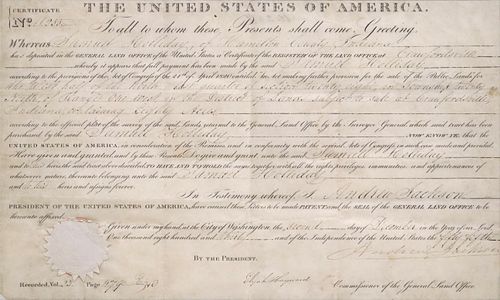 THE UNITED STATES OF AMERICA.
CERTIFICATE
No.
To all to whom these Presents shall come, Greeting:
Whereas Samuel Holliday, of Hamilton County, Indiana
has deposited in the GENERAL LAND OFFICE of the United States, a Certificate of the REGISTER OF THE LAND OFFICE at Crawfordsville
whereby it appears that full payment has been made by the said Samuel Holliday
according to the provisions of the Act of Congress of the 24th of April 1820, entitled An Act making further provision for the sale of the Public Lands for
the West half of the North East quarter of Section twenty eight, in Township twenty
North, of Range One West, in the District of Lands subject to sale at Crawfordsville,
Indiana, containing Eighty Acres
according to the official plat of the survey of the said Lands, returned to the General Land Office by the Surveyor General, which said tract has been
purchased by the said Samuel Holliday NOW KNOW YE, that the
UNITED STATES OF AMERICA, in consideration of the Premises, and in conformity with the several acts of Congress, in such case made and provided,
Have given and granted, and by these Presents Do give and grant unto the said Samuel Holliday
and to his heirs, the said tract above described, TO HAVE AND TO HOLD the same, together with all the rights, privileges, immunities, and appurtenances of
whatsoever nature, thereunto belonging, unto the said Samuel Holliday
and to his heirs and assigns forever.
In Testimony whereof, I, Andrew Jackson
PRESIDENT OF THE UNITED STATES OF AMERICA, have caused these Letters to be made PATENT, and the SEAL of the GENERAL LAND OFFICE to be
hereunto affixed.
Given under my hand at the City of Washington, the second day of December in the Year of our Lord
One thousand eight hundred and thirty and of the Independence of the United States the fifty fifth
Andrew Jackson
BY THE PRESIDENT.
Elijah Hayward Commissioner of the General Land Office.
Recorded, Vol. Page